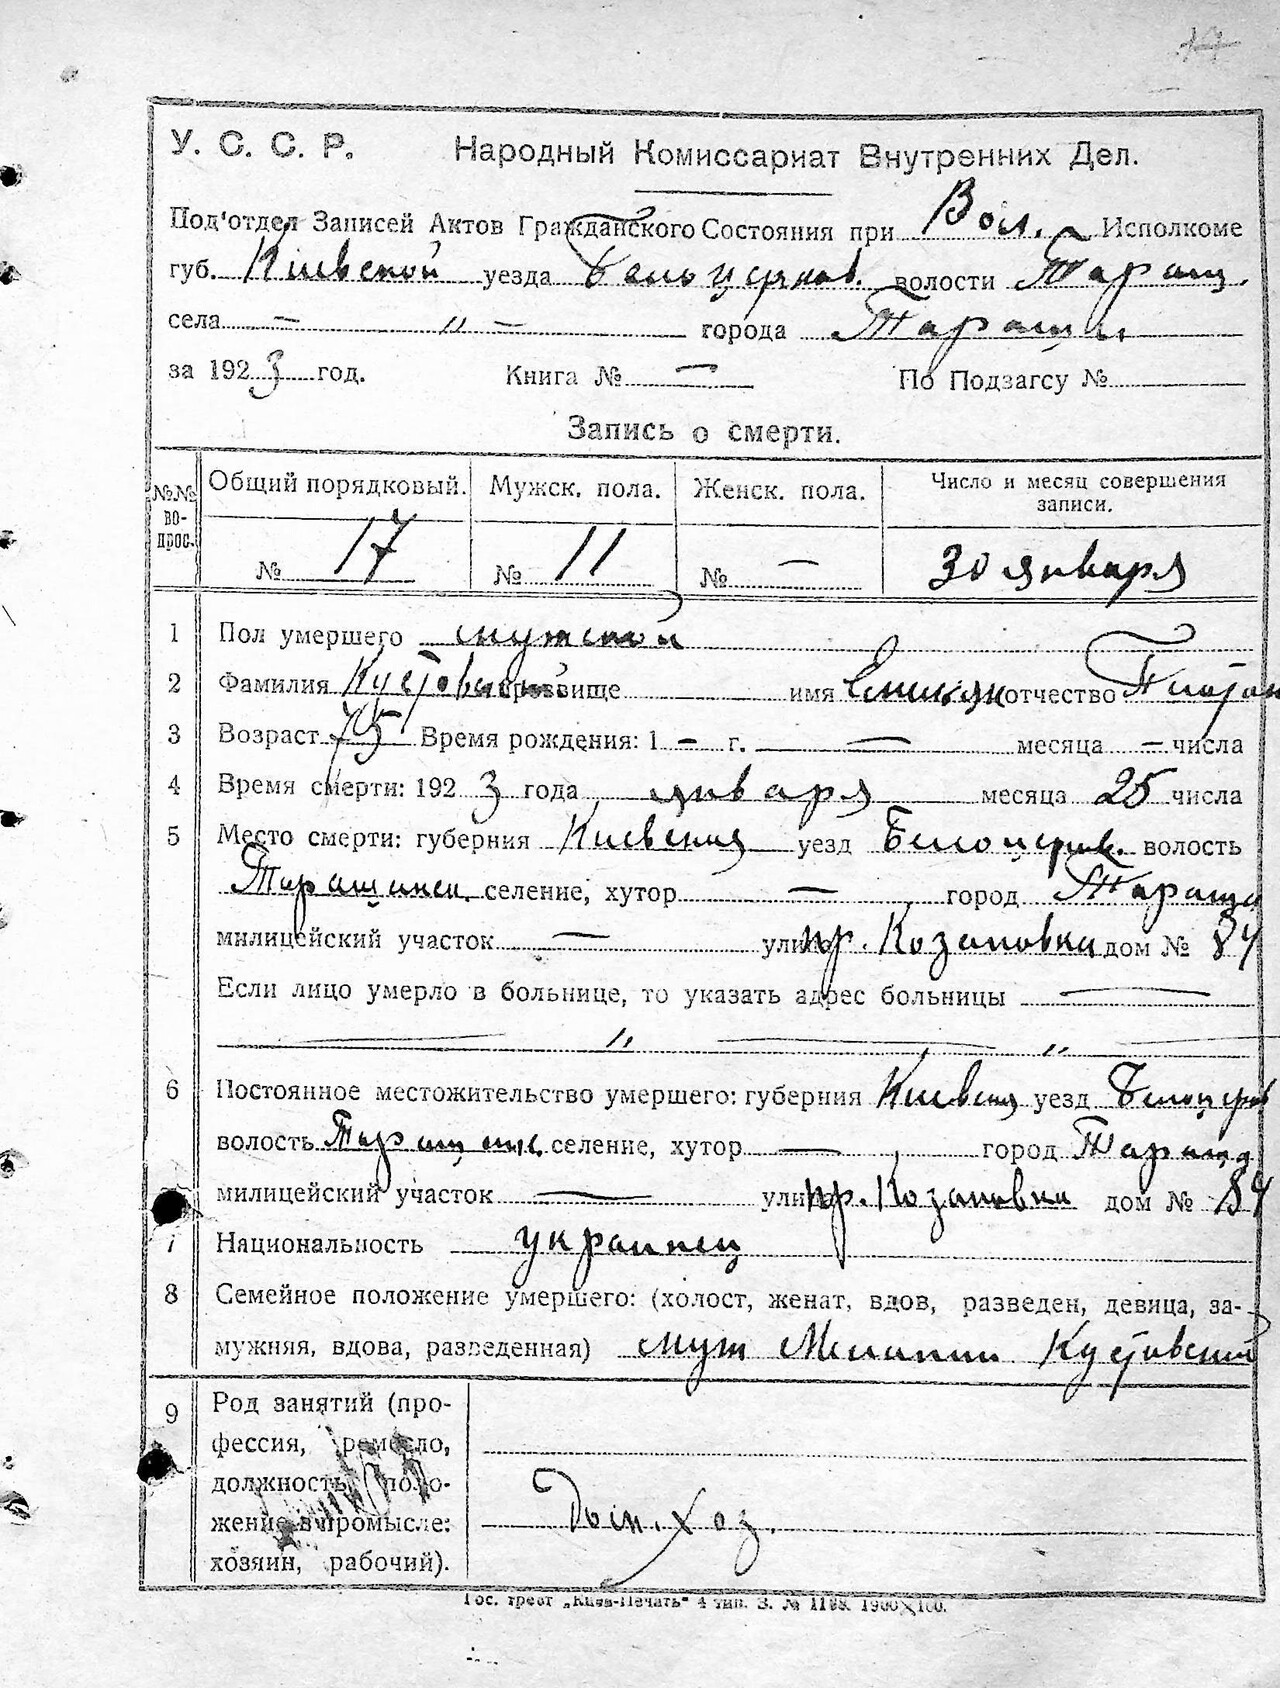 17
У. С. С. Р. Народный Комиссариат Внутренних Дел.
Под'отдел Записей Актов Гражданского Состояния при Вол. Исполкоме
губ. Киевской уезда Белоцерков. волости Таращ.
села — „ — города Таращи
за 1923 год. Книга № — По Подзагсу №
Запись о смерти.
№№ во-прос. Общий порядковый. Мужск. пола. Женск. пола. Число и месяц совершения записи.
№ 17 № 11 № — 30 января
1 Пол умершего мужской
2 Фамилия Кустовский прозвище имя Емельян отчество
3 Возраст 75 Время рождения: 1 — г. — месяца — числа
4 Время смерти: 1923 года января месяца 25 числа
5 Место смерти: губерния Киевская уезд Белоцерков. волость
Таращанск. селение, хутор — город Тараща
милицейский участок — улица пр. Козаповка дом № 84
Если лицо умерло в больнице, то указать адрес больницы —
— „ — „ —
6 Постоянное местожительство умершего: губерния Киевская уезд Белоцерков
волость Таращанс. селение, хутор — город Тараща
милицейский участок — улица пр. Козаповка дом № 84
7 Национальность украинец
8 Семейное положение умершего: (холост, женат, вдов, разведен, девица, за-
мужняя, вдова, разведенная) муж Мелании Кустовский
9 Род занятий (про-
фессия, ремесло,
должность, поло-
жение в промысле: Дом. хоз.
хозяин, рабочий).
Гос. трест „Киев-Печать" 4 тип. З. № 1188. 1900×100.